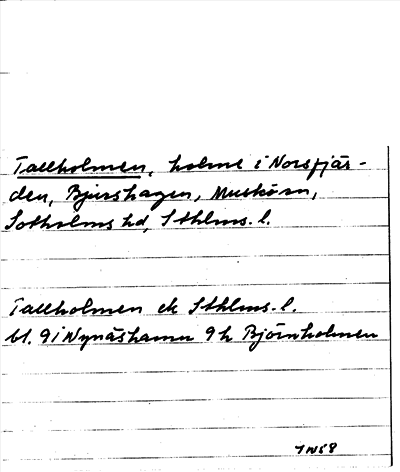 Tallholmen, holme i Norsfjär-
den, Björshagen, Muskö sn,
Sotholms hd, Sthlms. l.
Tallholmen ek Sthlms. l.
bl. 9i Nynäshamn 9h Björnholmen